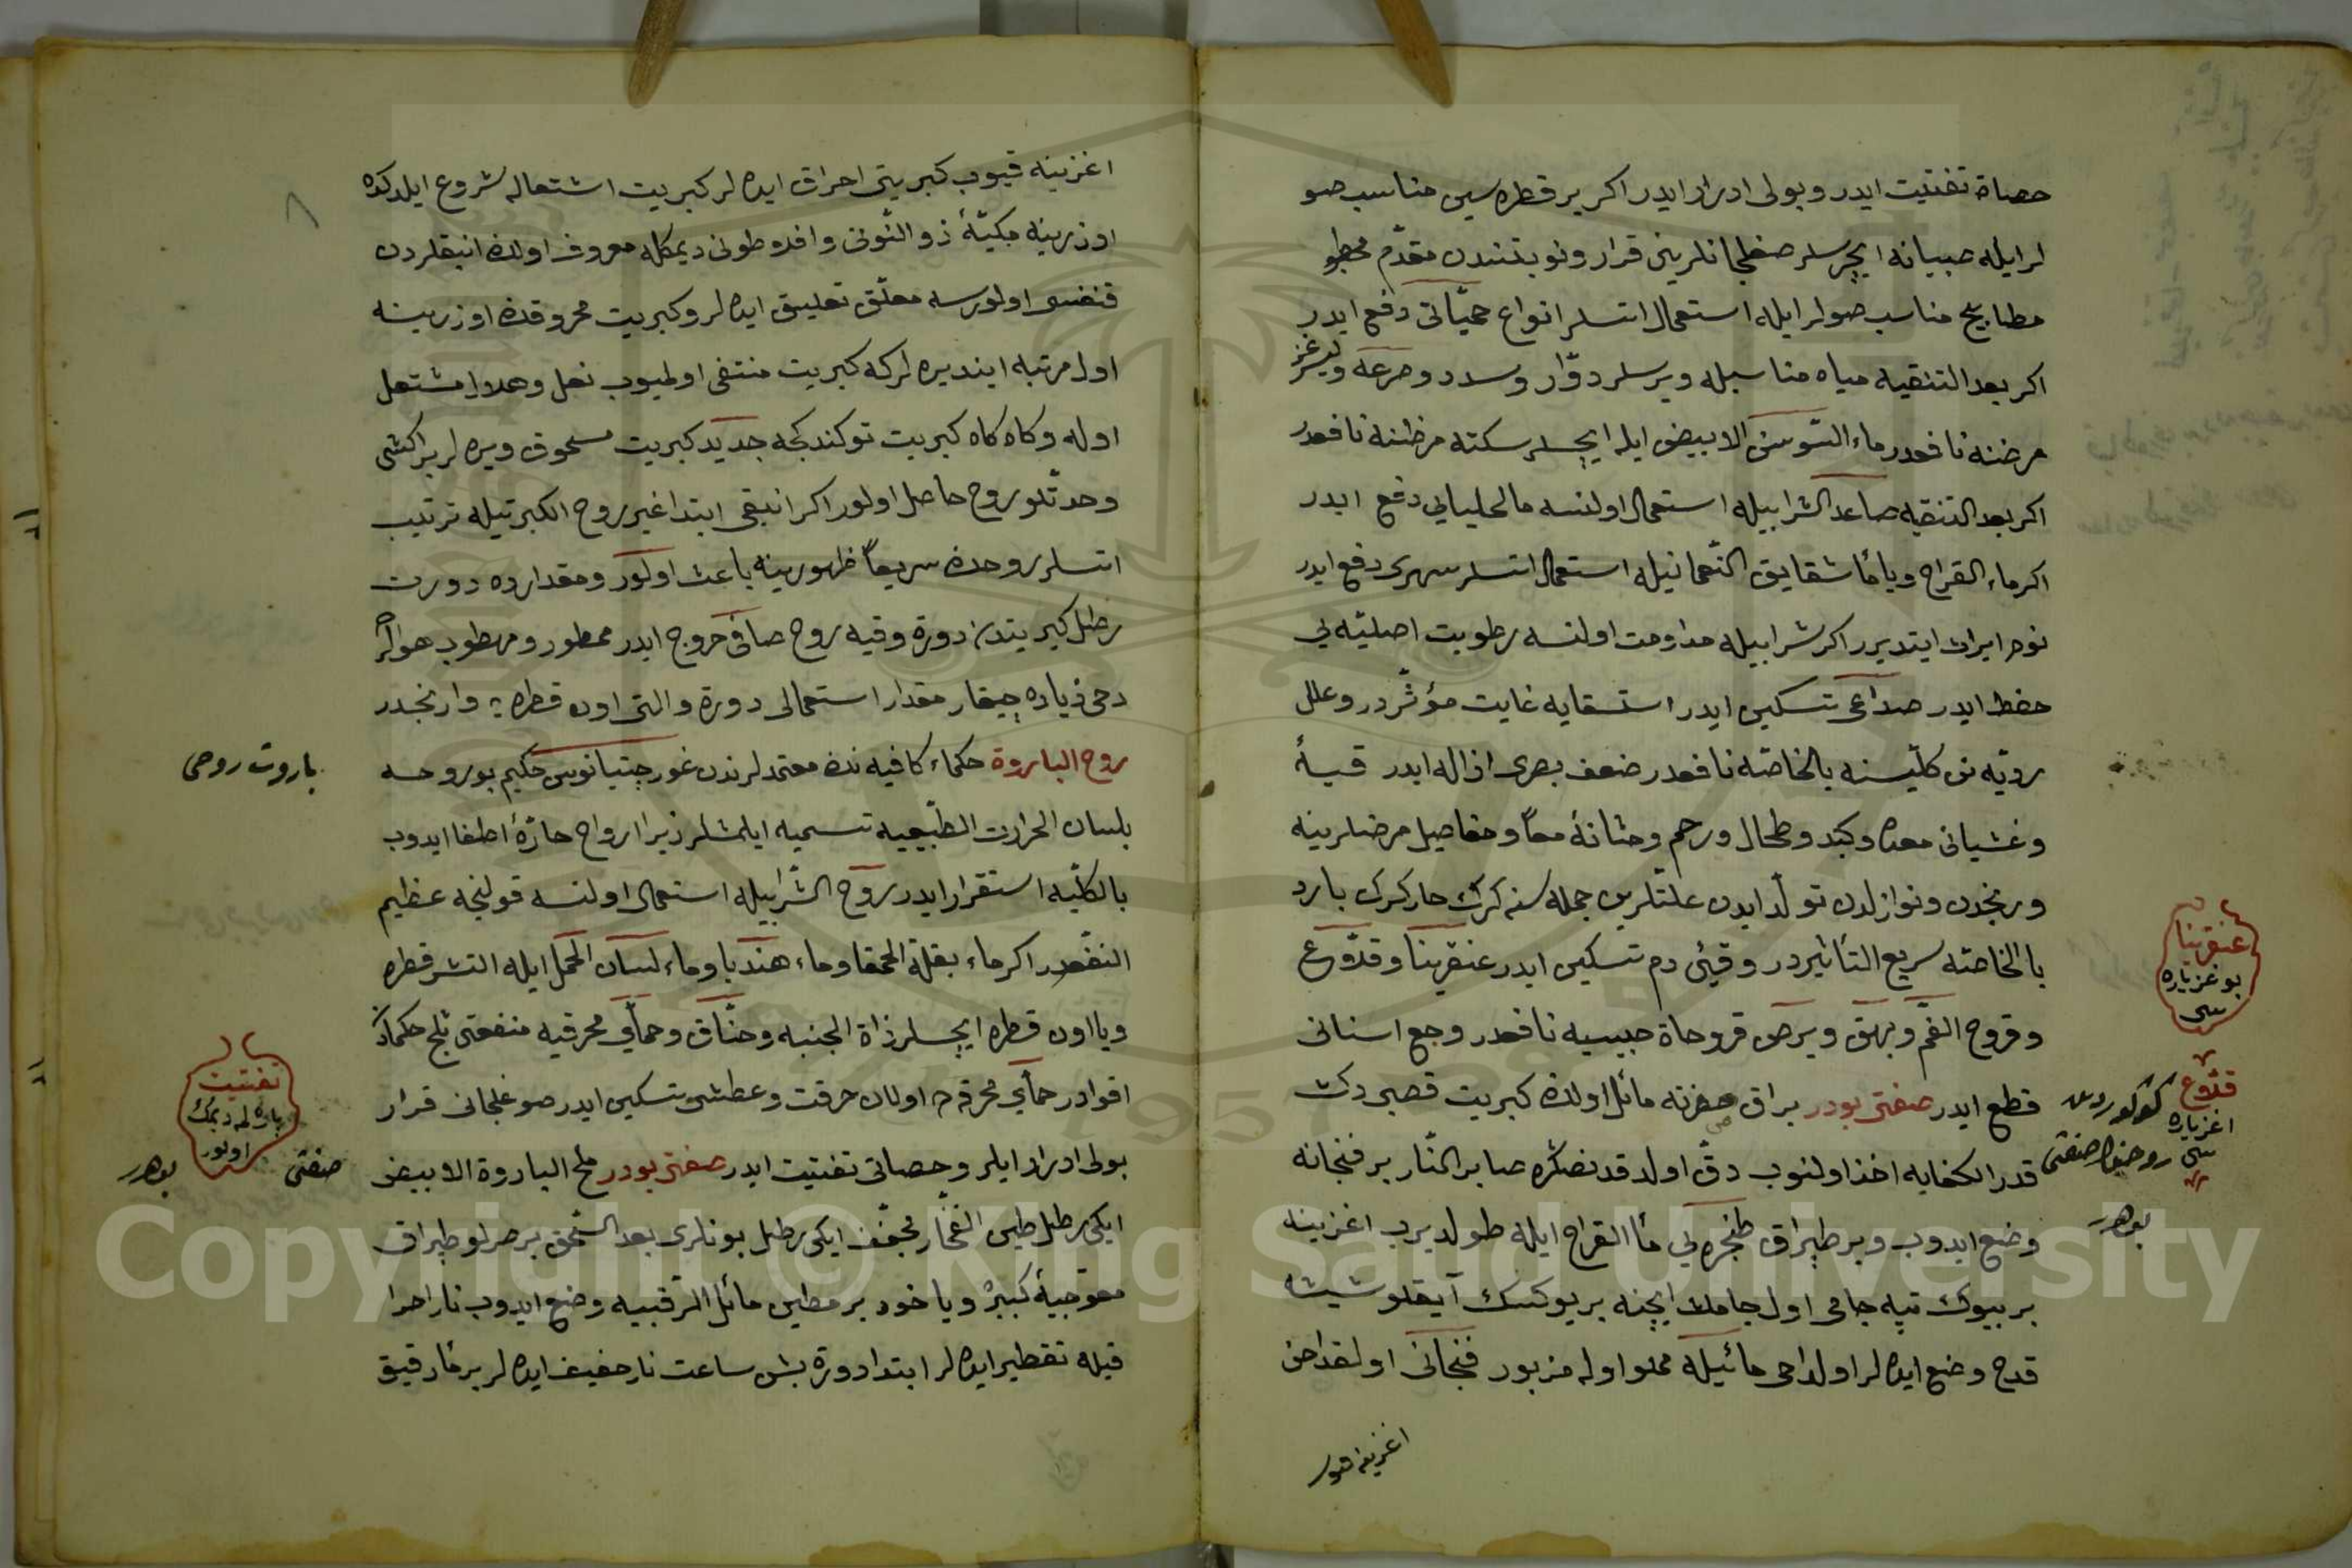 حصاة تفتيت ايدر وبولى ادرار ايدر اكر بر قطره سين مناسب صو
لر ايله صبيانه ايچرسلر صغلجانلرينى قرار ونوبتندن مقدّم
مطابيخ مناسب صولر ايله استعمال اتسلر انواع حمّياتى دفع ايدر
اكر بعد التنقيه مياه مناسبله ويرسلر دوّار وسدد وصرعه
مرضنه نافعدر ماء السّوسن الابيض ايله ايچسلر سكته مرضنه نافعدر
اكر بعد التنقيه صاعد الشرابيله استعمال اولنسه مالحليايى دفع ايدر
اكر ماء القراح ويا ماء شقايق النّعمانيله استعمال اتسلر سهرى دفع ايدر
نوم ايراث ايتديرر اكر شرابيله مداومت اولنسه رطوبت اصليّه يى
حفظ ايدر صداعى تسكين ايدر استسقايه غايت مؤثّردر وعلل
رويّه نن كلّيسنه بالخاصّه نافعدر ضعف بصرى ازاله ايدر قيأ
وغشيانى معده وكبد وطحال ورحم ومثانة معاً ومفاصيل مرضلرينه
وريحدن ونوازلدن تولّد ايدن علّتلرين جمله سنه كرك حار كرك بارد
بالخاصّه سريع التأثيردر وقيئى دم تسكين ايدر عنقرينا وقدّوع
وقروح الفم وبهق وبرص قروحاة حبيبيه نافعدر وجع اسنانى
قطع ايدر صفتى بودر براق صفرته مائل اولان كبريت قصبى دكت
قدر الكفايه اخذ اولنوب دقّ اولد قد نصكره صابر النّار بر فنجانه
وضع ايدوب وبر طپراق طنجره يى ماء القراح ايله طولديرب اغزينه
بر بيوك تپه جامى اول جامك ايچنه بر يوكسك آيقلو شيشه
قدح وضع ايده لر اولداحى مائيله مملو اوله مزبور فنجانى اول قداحن
عنقرينا
بوغز ياره
سى
قدّوع
اغز ياره
سى
كوكورددن
روحنك صفتى
بودر
اغزينه قيوب كبريتى احراق ايده لر كبريت اشتعاله شروع ايلدكده
اوزرينه مكبّة ذو النّونى وافدوطونى ديمكله معروف اولان انبقلردن
قنغسى اولورسه معلّق تعليق ايده لر وكبريت محروقك اوزرينه
اول مرتبه اينديره لر كه كبريت منتفى اولميوب نعل وعلاوا مشتعل
اوله وكاه كاه كبريت توكندكجه جديد كبريت مسحوق ويره لر بر اكشى
وحدّتلو روح حاصل اولور اكر انبيقى ابتدا غير روح الكبرتيله ترتيب
اتسلر روحك سريعاً ظهورينه باعث اولور ومقدارده دورت
رطل كبريتدن دورت وقيه روح صافى خروج ايدر ممطور ومرطوب هوالرده
دحى زياده چيقار مقدار استعمالى دورت والتى اون قطره يه وارنجدر
روح الباروة حكماء كافيه نك معتمدلرندن غورجتيانوس حكيم بو روحه
بلسان الحرارت الطّبيعيه تسميه ايلمشلر زيرا ارواح حارّة اطفا ايدوب
بالكلّيه استقرار ايدر روح الشّرابيله استعمال اولنسه قولنجه عظيم
النفعدر اكر ماء بقلة الحمقا وماء هندبا وماء لسان الحمل ايله التشر قطره
ويا اون قطره ايچسلر ذاة الجنبه وخنّاق وحمّاي محرقيه منفعتى ثلج حكماده
اقوادر حمّاي محرقه ده اولان حرقت وعطشى تسكين ايدر صوغلجانى قرار
بولى ادرار ايلر وحصاتى تفتيت ايدر صفتى بودر ملح الباروة الابيض
ايكى رطل طين الفخّار مجفّف ايكى رطل بونلرى بعد السّحق بر صرلو طپراق
معوجيأ كبير ويا خود بر مطين مائل الرّقبيه وضع ايدوب نار احرا
قيله تقطير ايده لر ابتدا دورت بش ساعت نار حفيف ايده لر بر ماء رقيق
باروت روحى
تفتيت
پاره لمه ديمك
اولور
صفتى
بودر
Copyright © King Saud University
1957